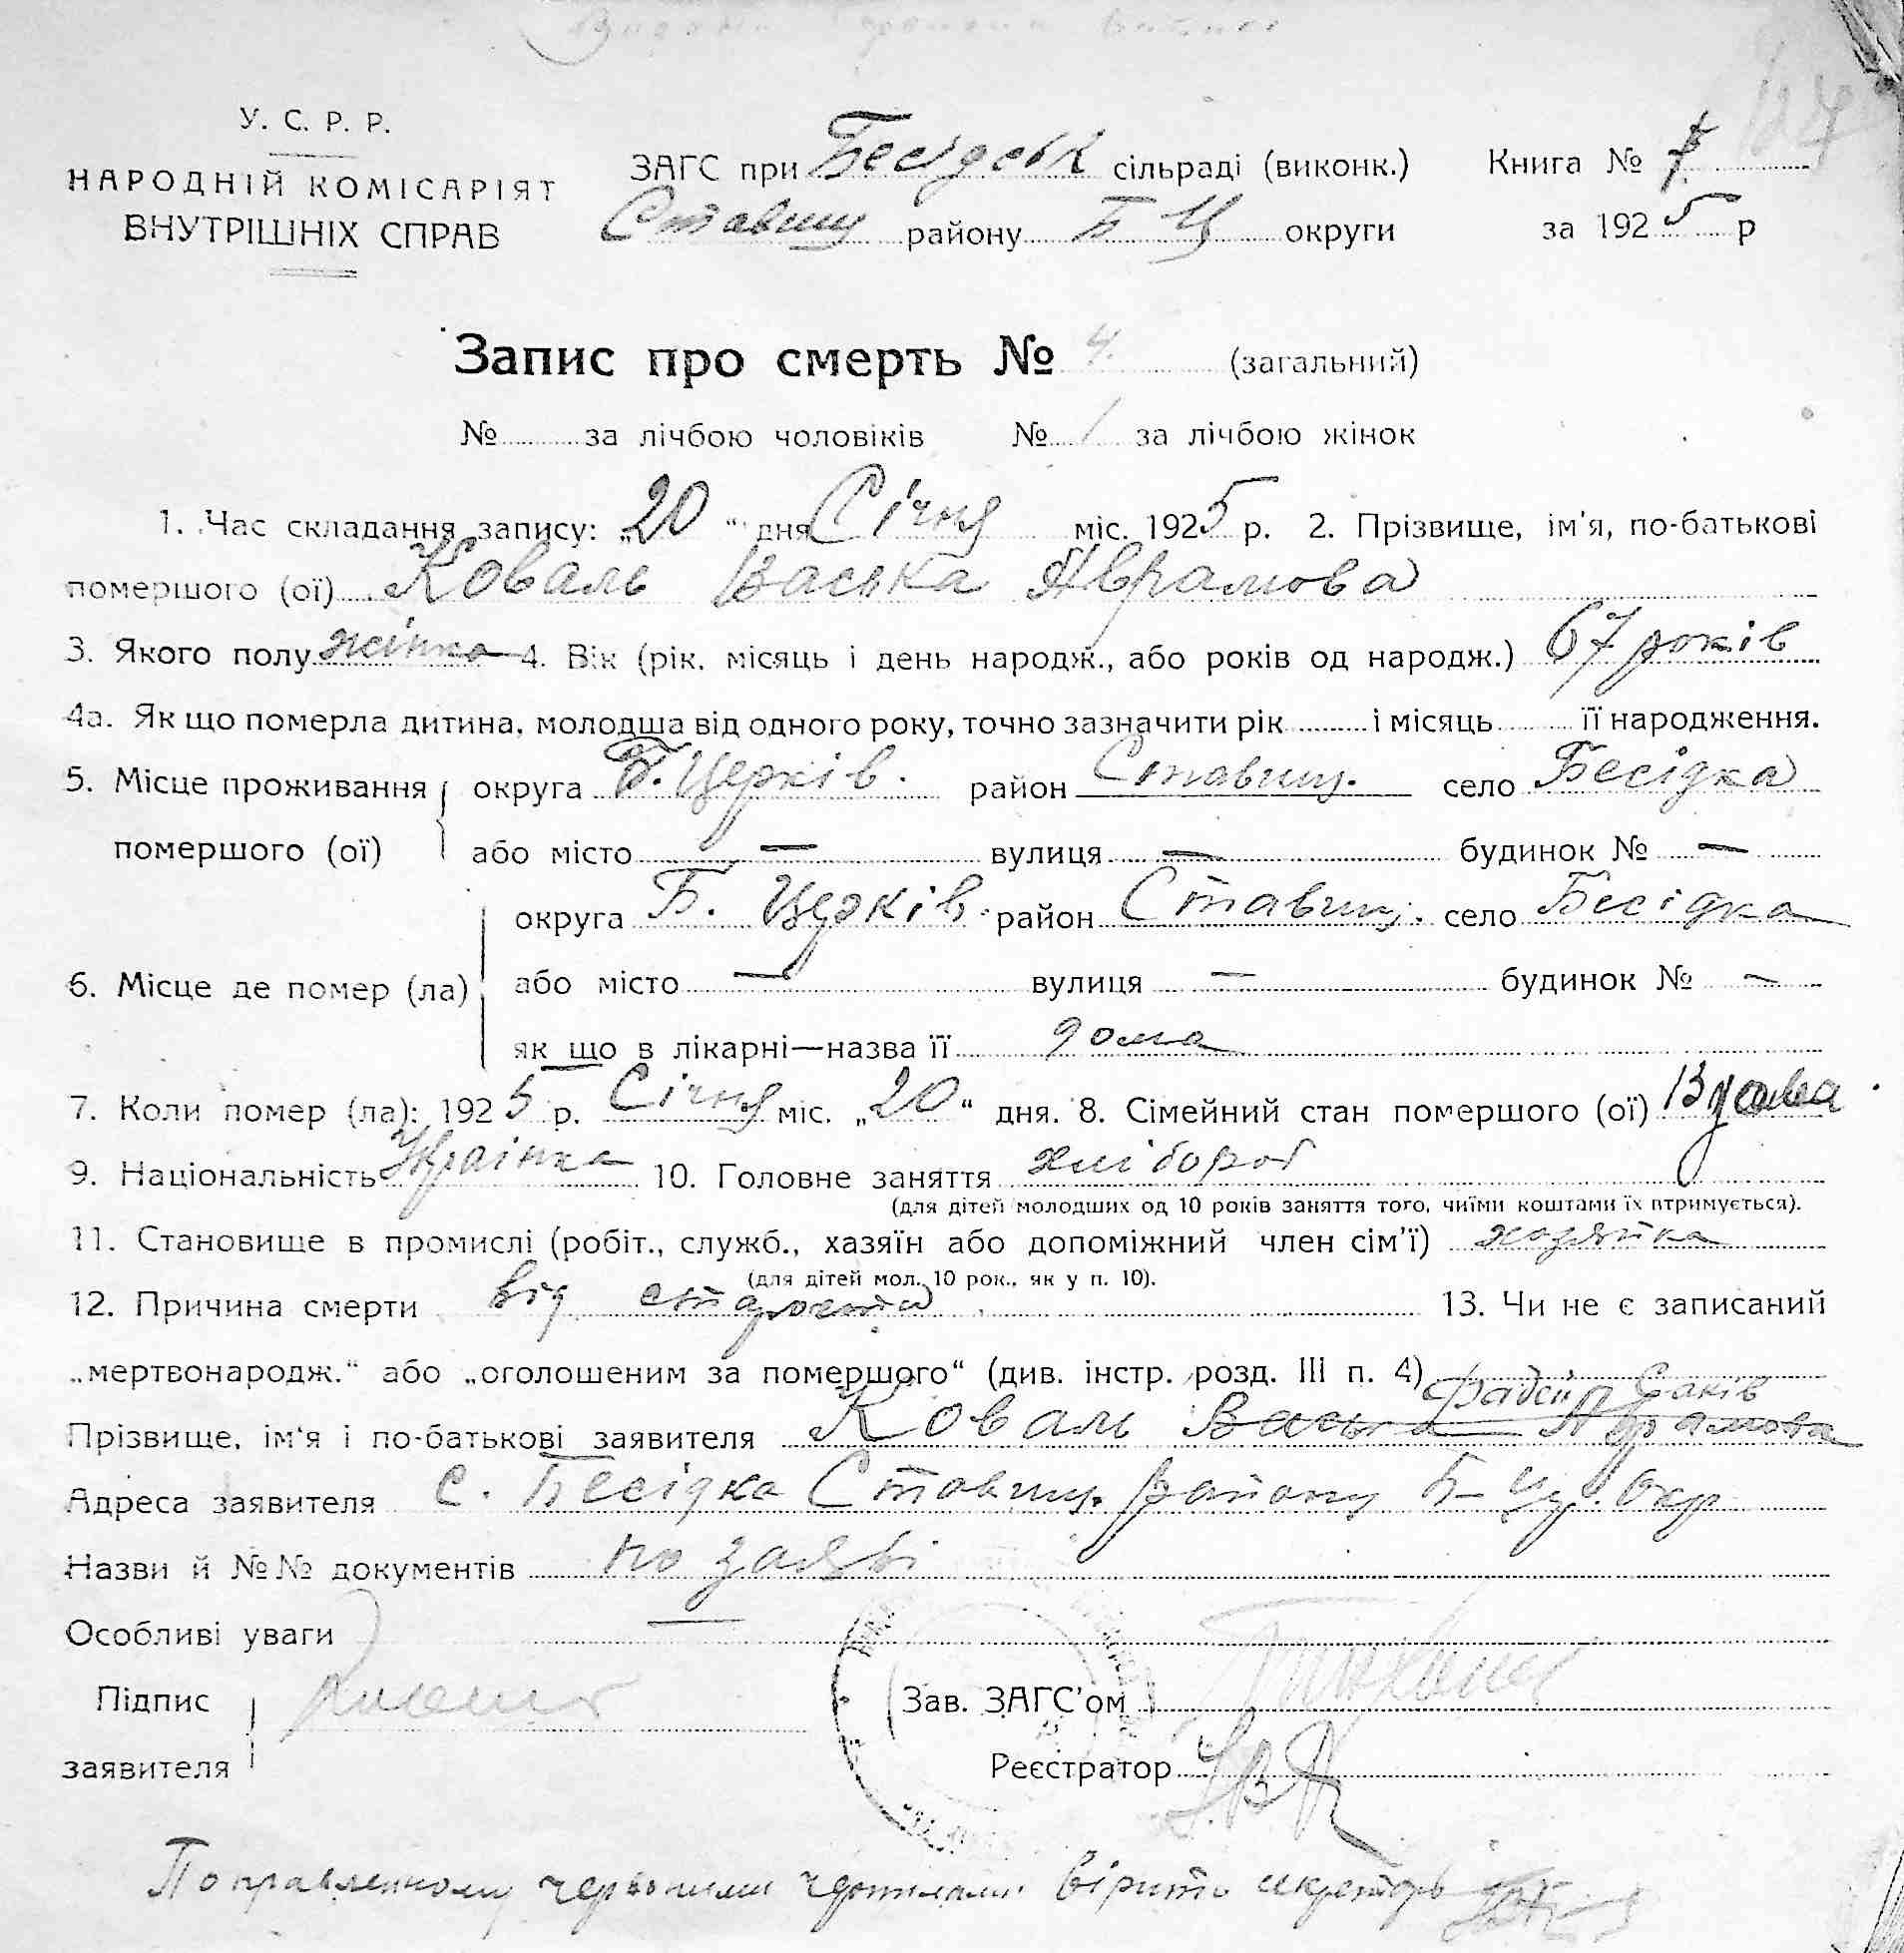 У. С. Р. Р.
НАРОДНІЙ КОМІСАРІЯТ
ВНУТРІШНІХ СПРАВ
ЗАГС при Бесідськ сільраді (виконк.) Книга №
Ставищ району Б Ц округи за 1925 р
Запис про смерть № 4. (загальний)
№ за лічбою чоловіків № 1 за лічбою жінок
1. Час складання запису: „20“ дня Січня міс. 1925 р. 2. Прізвище, ім'я, по-батькові
помершого (ої) Коваль Васька Аврамова
3. Якого полу жінка 4. Вік (рік. місяць і день народж., або років од народж.) 67 років
4а. Як що померла дитина, молодша від одного року, точно зазначити рік і місяць її народження.
5. Місце проживання округа Б. Церків. район Ставищ. село Бесідка
помершого (ої) або місто — вулиця — будинок № —
округа Б. Церків. район Ставищ. село Бесідка
6. Місце де помер (ла) або місто — вулиця — будинок № —
як що в лікарні—назва її дома
7. Коли помер (ла): 1925 р. Січня міс. „20“ дня. 8. Сімейний стан помершого (ої) Вдова
9. Національність Украінка 10. Головне заняття хлібороб
(для дітей молодших од 10 років заняття того, чиїми коштами їх втримується).
11. Становище в промислі (робіт., служб., хазяїн або допоміжний член сім'ї) хозяйка
(для дітей мол. 10 рок., як у п. 10).
12. Причина смерти від старости 13. Чи не є записаний
„мертвонародж.“ або „оголошеним за помершого“ (див. інстр. розд. III п. 4)
Фадей Яаків
Прізвище, ім'я і по-батькові заявителя Коваль Васька Аврамова
Адреса заявителя с. Бесідка Ставищ. району Б-Це. Окр
Назви й №№ документів по заяві
Особливі уваги
Підпис Зав. ЗАГС'ом
заявителя Реєстратор
Поправленному червоними чернилами вірить секретарь